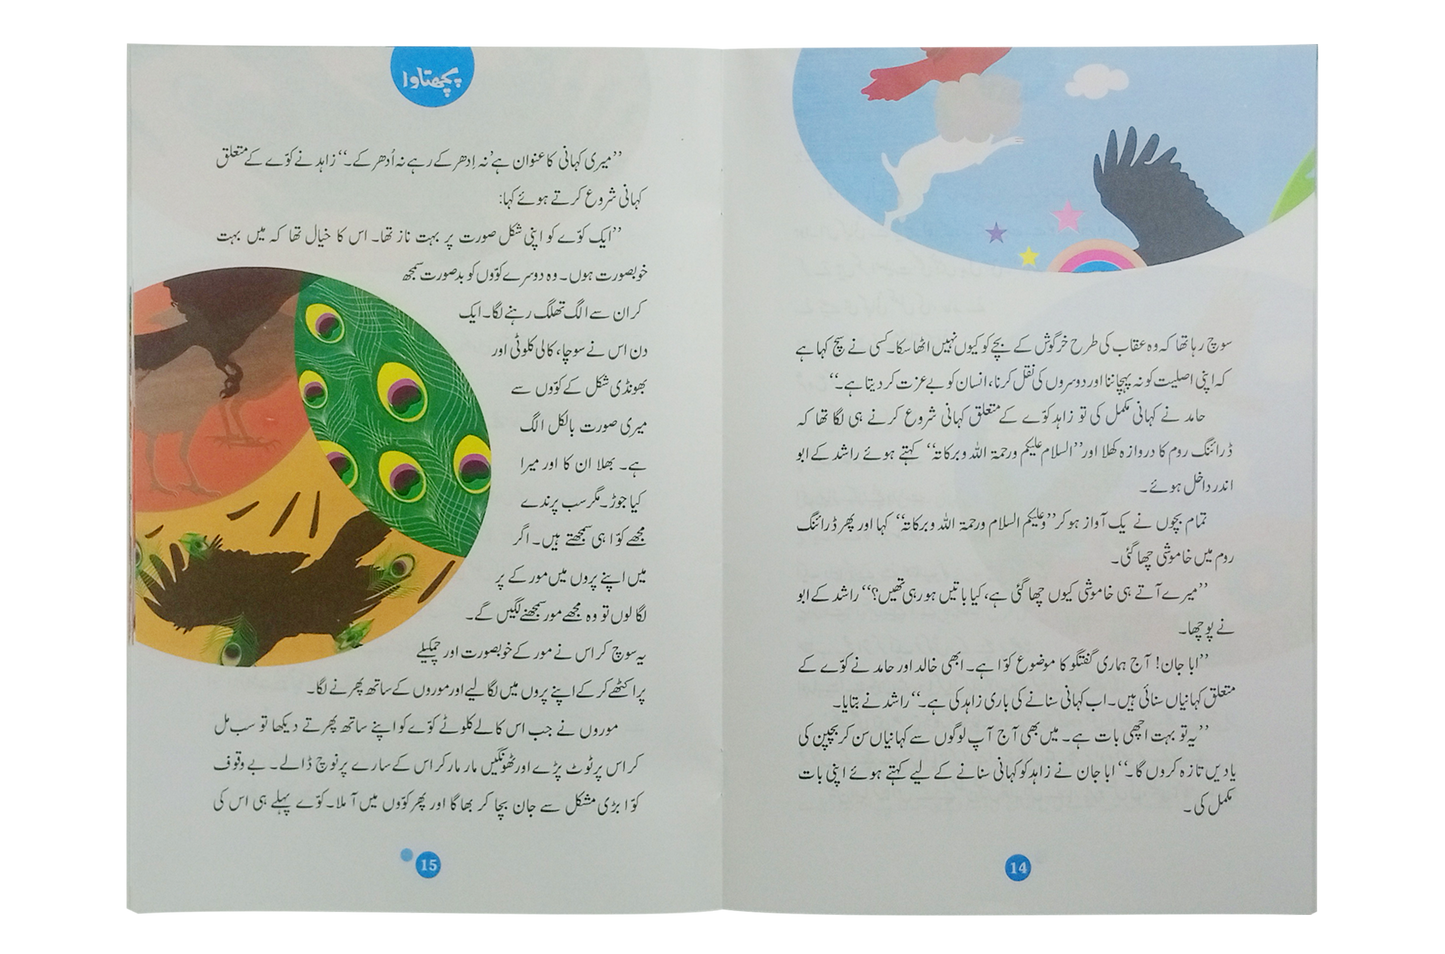 سوچ رہا تھا کہ وہ عقاب کی طرح خرگوش کے بچے کو کیوں نہیں اٹھا سکا۔ کسی نے سچ کہا ہے
کہ اپنی اصلیت کو نہ پہچاننا اور دوسروں کی نقل کرنا، انسان کو بے عزت کر دیتا ہے۔‘‘
حامد نے کہانی مکمل کی تو زاہد کوّے کے متعلق کہانی شروع کرنے ہی لگا تھا کہ
ڈرائنگ روم کا دروازہ کھلا اور ’’السلام علیکم ورحمۃ اللہ وبرکاتہٗ‘‘ کہتے ہوئے راشد کے ابو
اندر داخل ہوئے۔
تمام بچوں نے یک آواز ہو کر ’’وعلیکم السلام ورحمۃ اللہ وبرکاتہٗ‘‘ کہا اور پھر ڈرائنگ
روم میں خاموشی چھا گئی۔
’’میرے آتے ہی خاموشی کیوں چھا گئی ہے، کیا باتیں ہو رہی تھیں؟‘‘ راشد کے ابو
نے پوچھا۔
’’ابا جان! آج ہماری گفتگو کا موضوع کوّا ہے۔ ابھی خالد اور حامد نے کوّے کے
متعلق کہانیاں سنائی ہیں۔ اب کہانی سنانے کی باری زاہد کی ہے۔‘‘ راشد نے بتایا۔
’’یہ تو بہت اچھی بات ہے۔ میں بھی آج آپ لوگوں سے کہانیاں سن کر بچپن کی
یادیں تازہ کروں گا۔‘‘ ابا جان نے زاہد کو کہانی سنانے کے لیے کہتے ہوئے اپنی بات
مکمل کی۔
14
پچھتاوا
’’میری کہانی کا عنوان ہے ’نہ اِدھر کے رہے نہ اُدھر کے۔‘‘ زاہد نے کوّے کے متعلق
کہانی شروع کرتے ہوئے کہا:
’’ایک کوّے کو اپنی شکل صورت پر بہت ناز تھا۔ اس کا خیال تھا کہ میں بہت
خوبصورت ہوں۔ وہ دوسرے کوّوں کو بدصورت سمجھ
کر ان سے الگ تھلگ رہنے لگا۔ ایک
دن اس نے سوچا، کالی کلوٹی اور
بھونڈی شکل کے کوّوں سے
میری صورت بالکل الگ
ہے۔ بھلا ان کا اور میرا
کیا جوڑ۔ مگر سب پرندے
مجھے کوّا ہی سمجھتے ہیں۔ اگر
میں اپنے پروں میں مور کے پر
لگا لوں تو وہ مجھے مور سمجھنے لگیں گے۔
یہ سوچ کر اس نے مور کے خوبصورت اور چمکیلے
پر اکٹھے کر کے اپنے پروں میں لگا لیے اور موروں کے ساتھ پھرنے لگا۔
موروں نے جب اس کالے کلوٹے کوّے کو اپنے ساتھ پھرتے دیکھا تو سب مل
کر اس پر ٹوٹ پڑے اور ٹھونگیں مار مار کر اس کے سارے پر نوچ ڈالے۔ بے وقوف
کوّا بڑی مشکل سے جان بچا کر بھاگا اور پھر کوّوں میں آ ملا۔ کوّے پہلے ہی اس کی
15